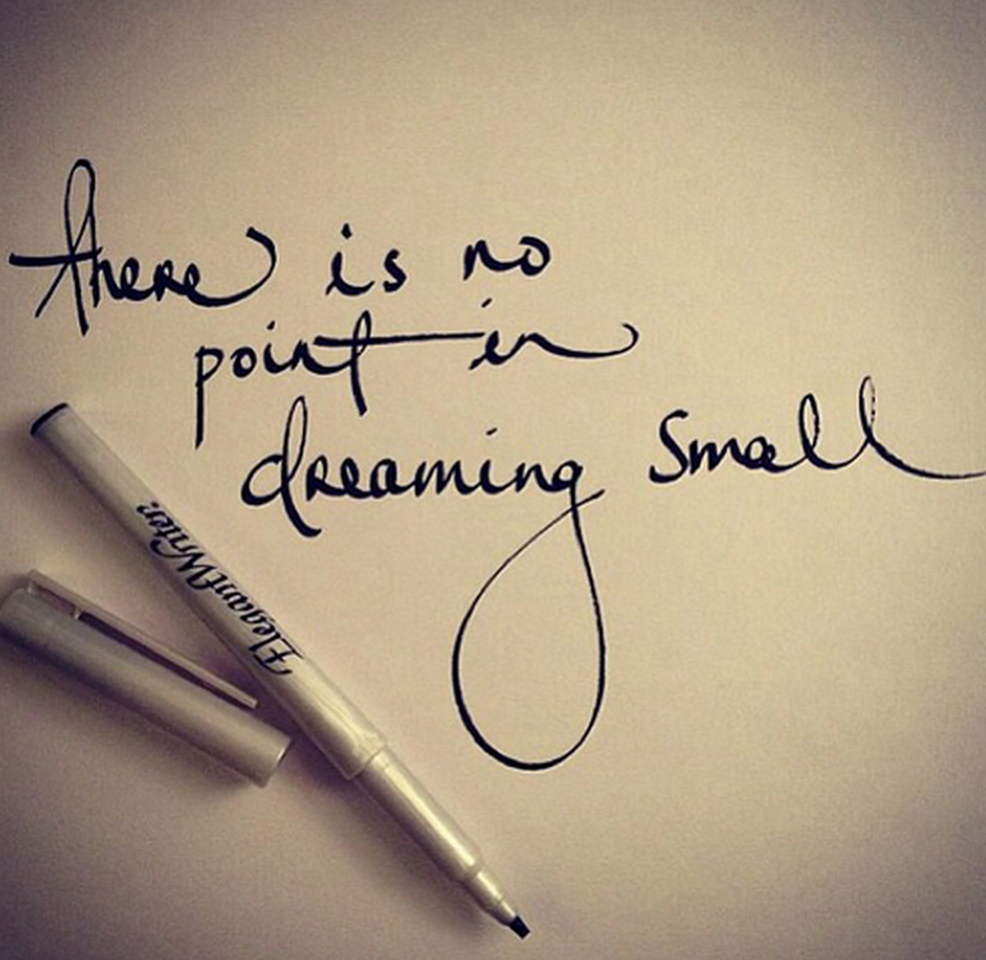 there is no
point in
dreaming small
Elegant Writer.